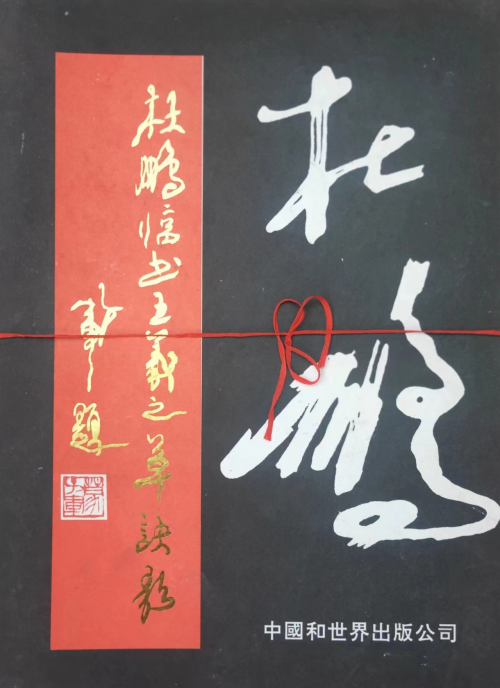 杜鵬
杜鵬临书王羲之草訣歌
題
中國和世界出版公司